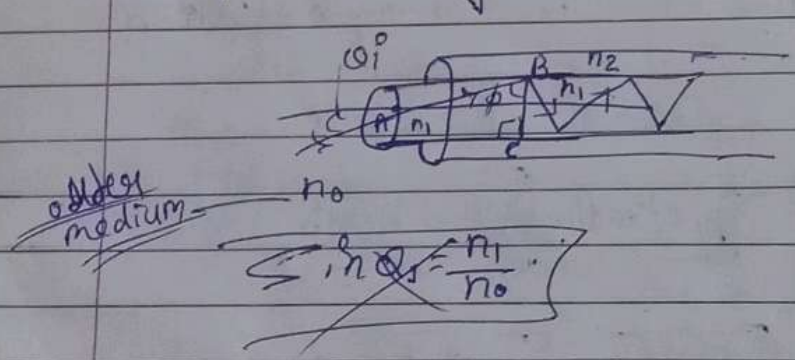 θi
B n2
A n1 φ n1
C
outer medium n0
Sin θi = n1/n0